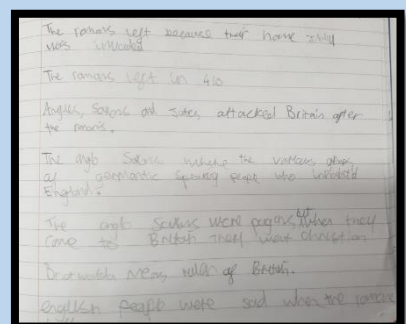 The romans left because their home Italy
was invaded
The romans left in 410
Angles, Saxons and Jutes, attacked Britain after
the romans.
The anglo Saxons where the various groups
of germantic speaking people who inhabited
England.
The anglo Saxons were pagans, but when they
come to British they went christian
Bretwalda means ruler of British.
english people were sad when the romans